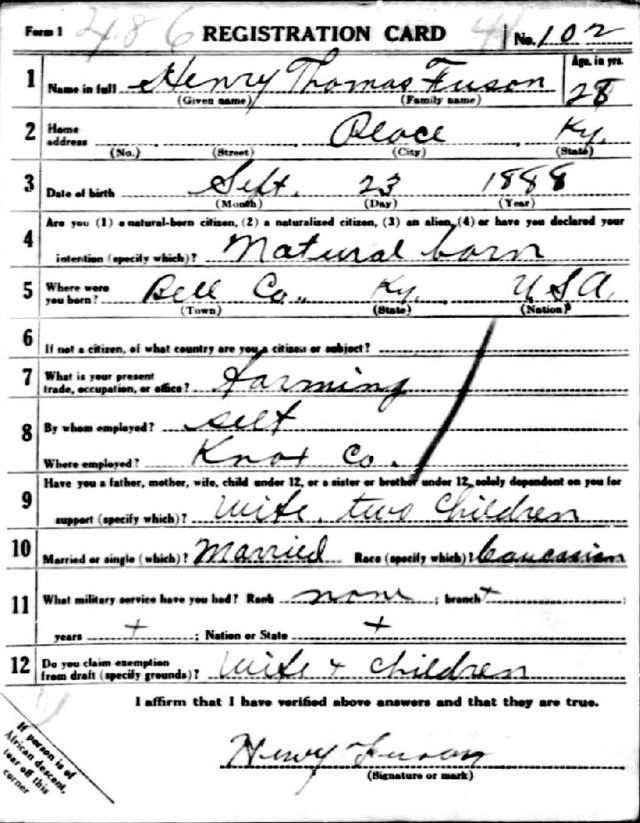 Form 1 486 REGISTRATION CARD No. 102
1 Name in full Henry Thomas Fuson Age, in yrs. 28
(Given name) (Family name)
2 Home address Place Ky.
(No.) (Street) (City) (State)
3 Date of birth Sept. 23 1888
(Month) (Day) (Year)
4 Are you (1) a natural-born citizen, (2) a naturalized citizen, (3) an alien, (4) or have you declared your
intention (specify which)? Natural born
5 Where were you born? Bell Co., Ky. USA.
(Town) (State) (Nation)
6 If not a citizen, of what country are you a citizen or subject?
7 What is your present trade, occupation, or office? Farming
8 By whom employed? self
Where employed? Knox Co.
9 Have you a father, mother, wife, child under 12, or a sister or brother under 12, solely dependent on you for
support (specify which)? Wife, two Children
10 Married or single (which)? Married Race (specify which)? Caucasian
11 What military service have you had? Rank none ; branch +
years + ; Nation or State +
12 Do you claim exemption from draft (specify grounds)? Wife + children
I affirm that I have verified above answers and that they are true.
Henry Fuson
(Signature or mark)
If person is of
African descent,
tear off this
corner